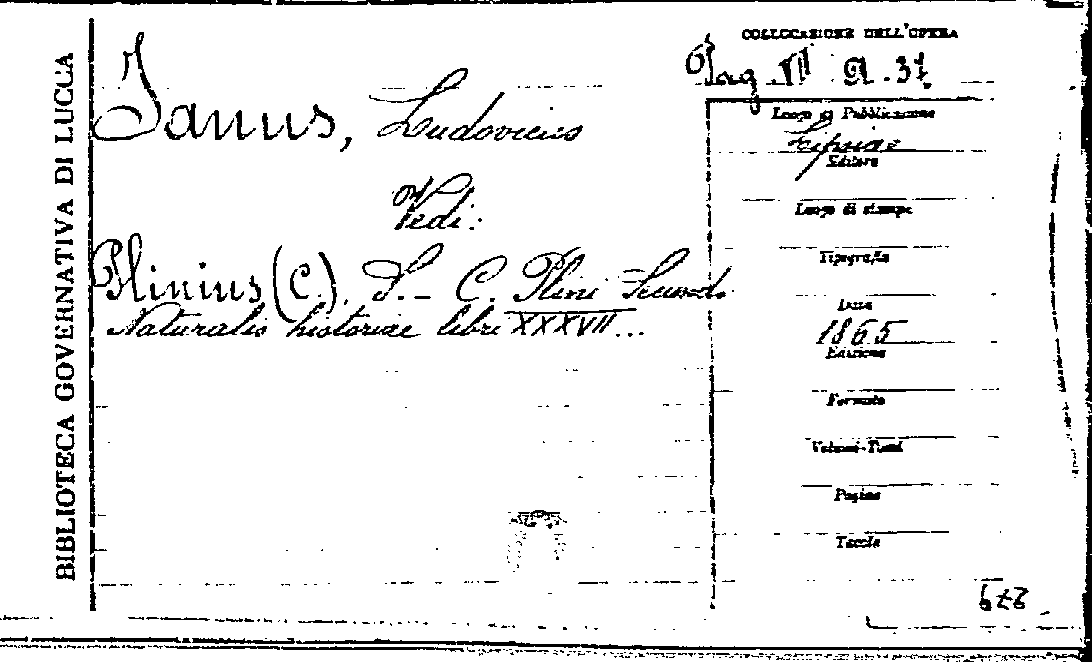 BIBLIOTECA GOVERNATIVA DI LUCCA
Ianus, Ludovicus
Vedi:
Plinius (C.) S. - C. Plini Secundi
Naturalis historiae libri XXXVII...
COLLOCAZIONE DELL'OPERA
Pag. VII A. 37
Luogo di Pubblicazione
Lipsiae
Editore
Luogo di stampa
Tipografia
Data
1865
Edizione
Formato
Volumi-Tomi
Pagine
Tavole